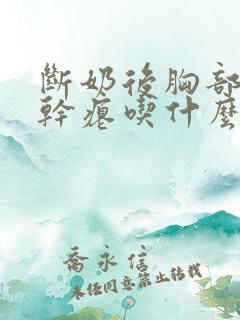 斷奶後胸部
幹癟喫什麼
喬永信
未经同意禁止转载